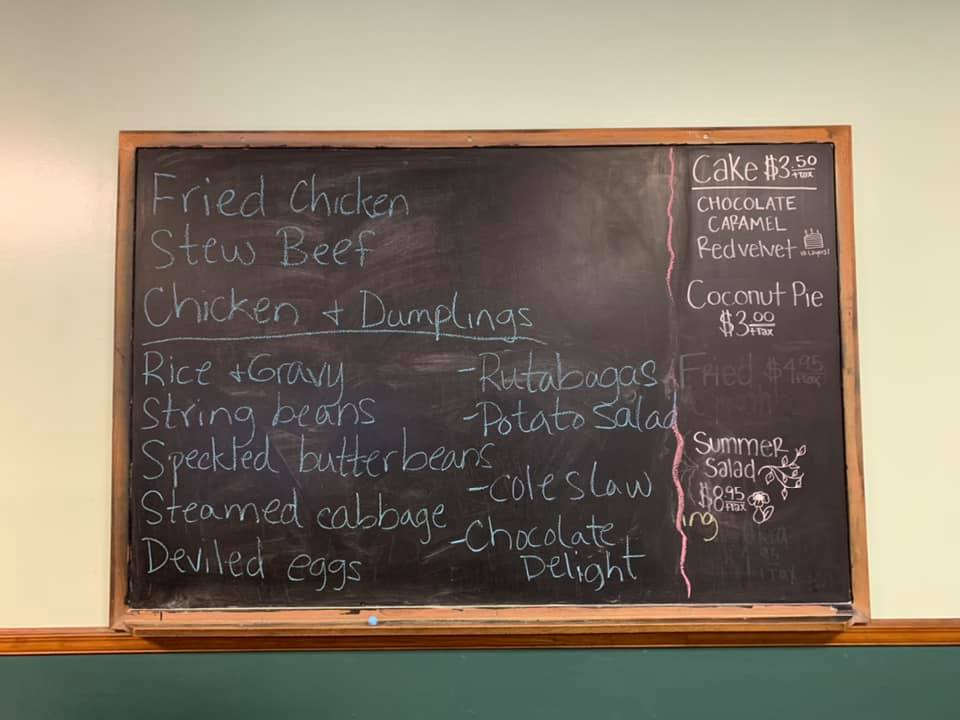 Fried Chicken
Stew Beef
Chicken + Dumplings
Rice + Gravy
String beans
Speckled butterbeans
Steamed cabbage
Deviled eggs
-Rutabagas
-Potato Salad
-coleslaw
-Chocolate
Delight
Cake $3.50
+tax
CHOCOLATE
CARAMEL
Red velvet
Coconut Pie
$3.00
+tax
Fried $4.95
+tax
Summer
Salad
$8.95
+tax
ing